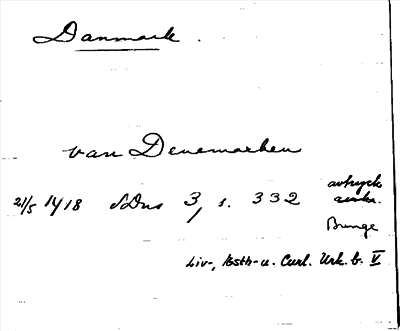 Danmark.
van Denemarken
21/5 1418 SDns 3, s. 332 avtryck
Bunge
Liv-, Esth- u. Curl. Urk. b. V